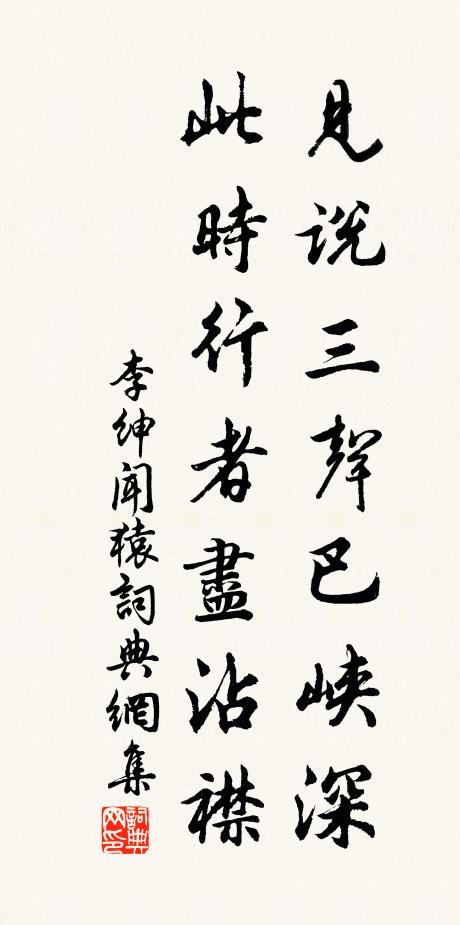 見説三聲巴峽深
此時行者盡沾襟
李紳聞猿詞典網集
詞典
网印